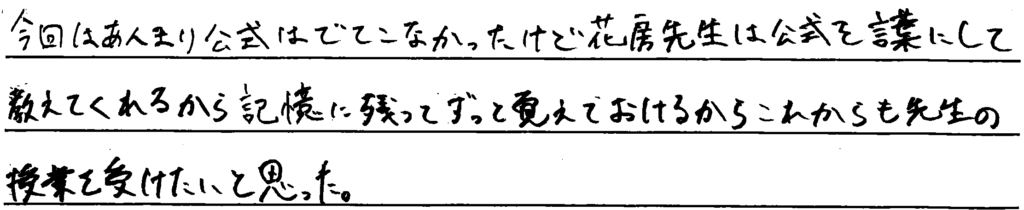 今回はあんまり公式はでてこなかったけど花房先生は公式を言葉にして
教えてくれるから記憶に残ってずっと覚えておけるからこれからも先生の
授業を受けたいと思った。